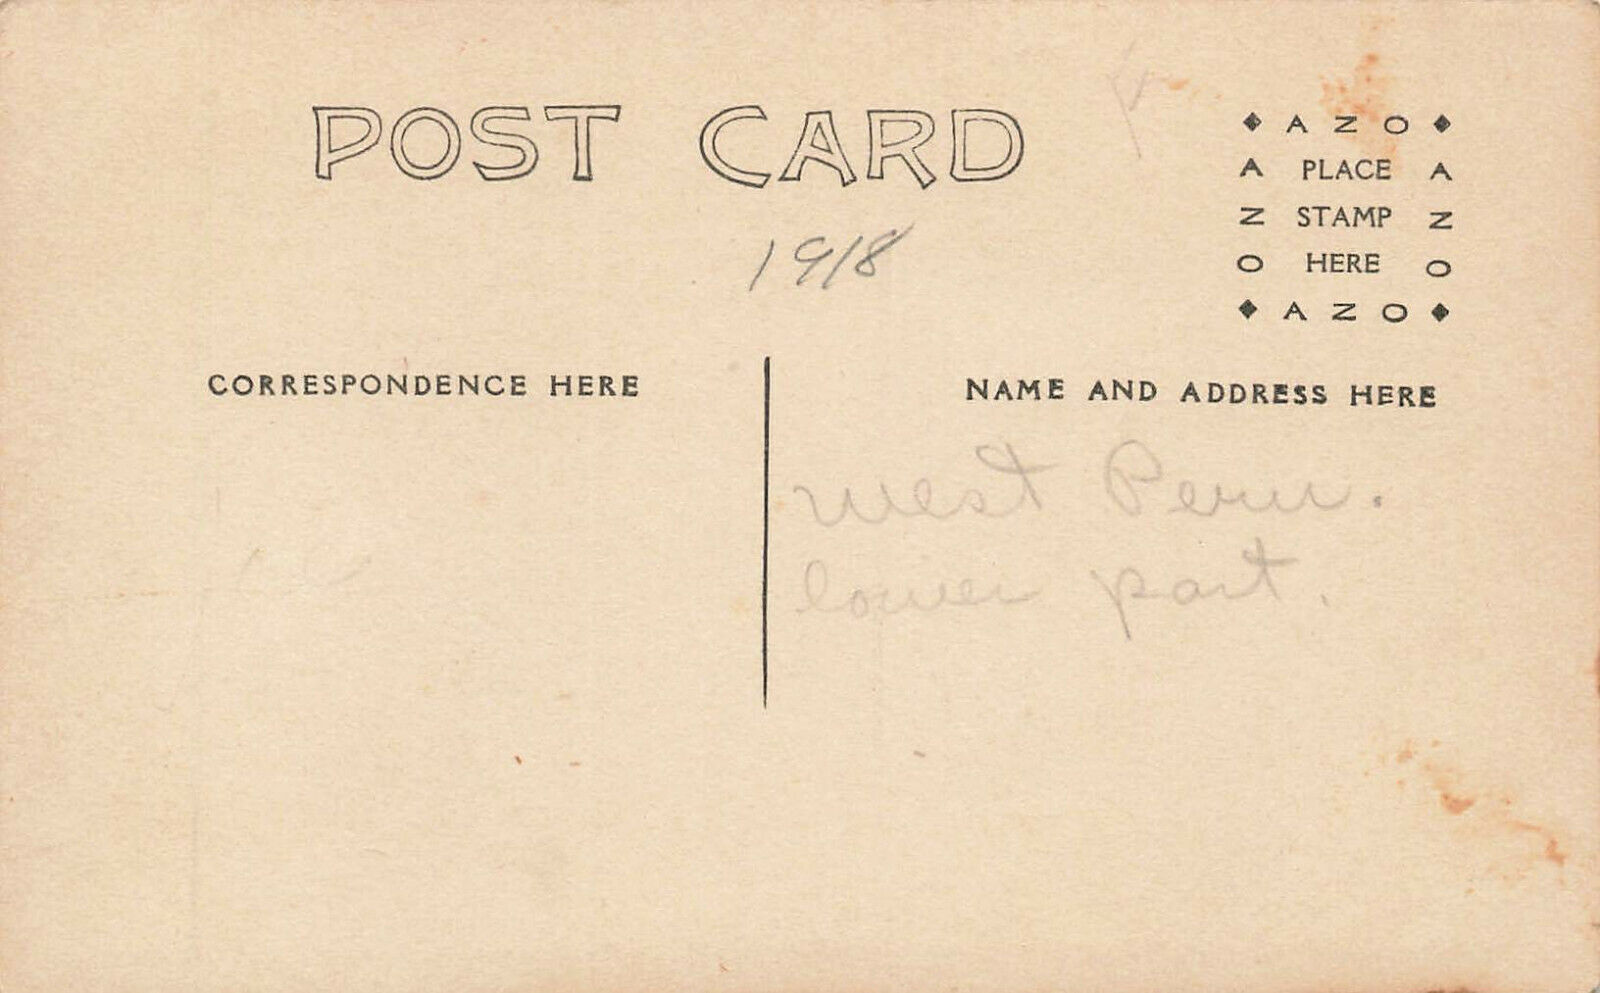 POST CARD
◆ A Z O ◆
A PLACE A
Z STAMP Z
O HERE O
◆ A Z O ◆
1918
CORRESPONDENCE HERE
NAME AND ADDRESS HERE
West Peru.
lower part.